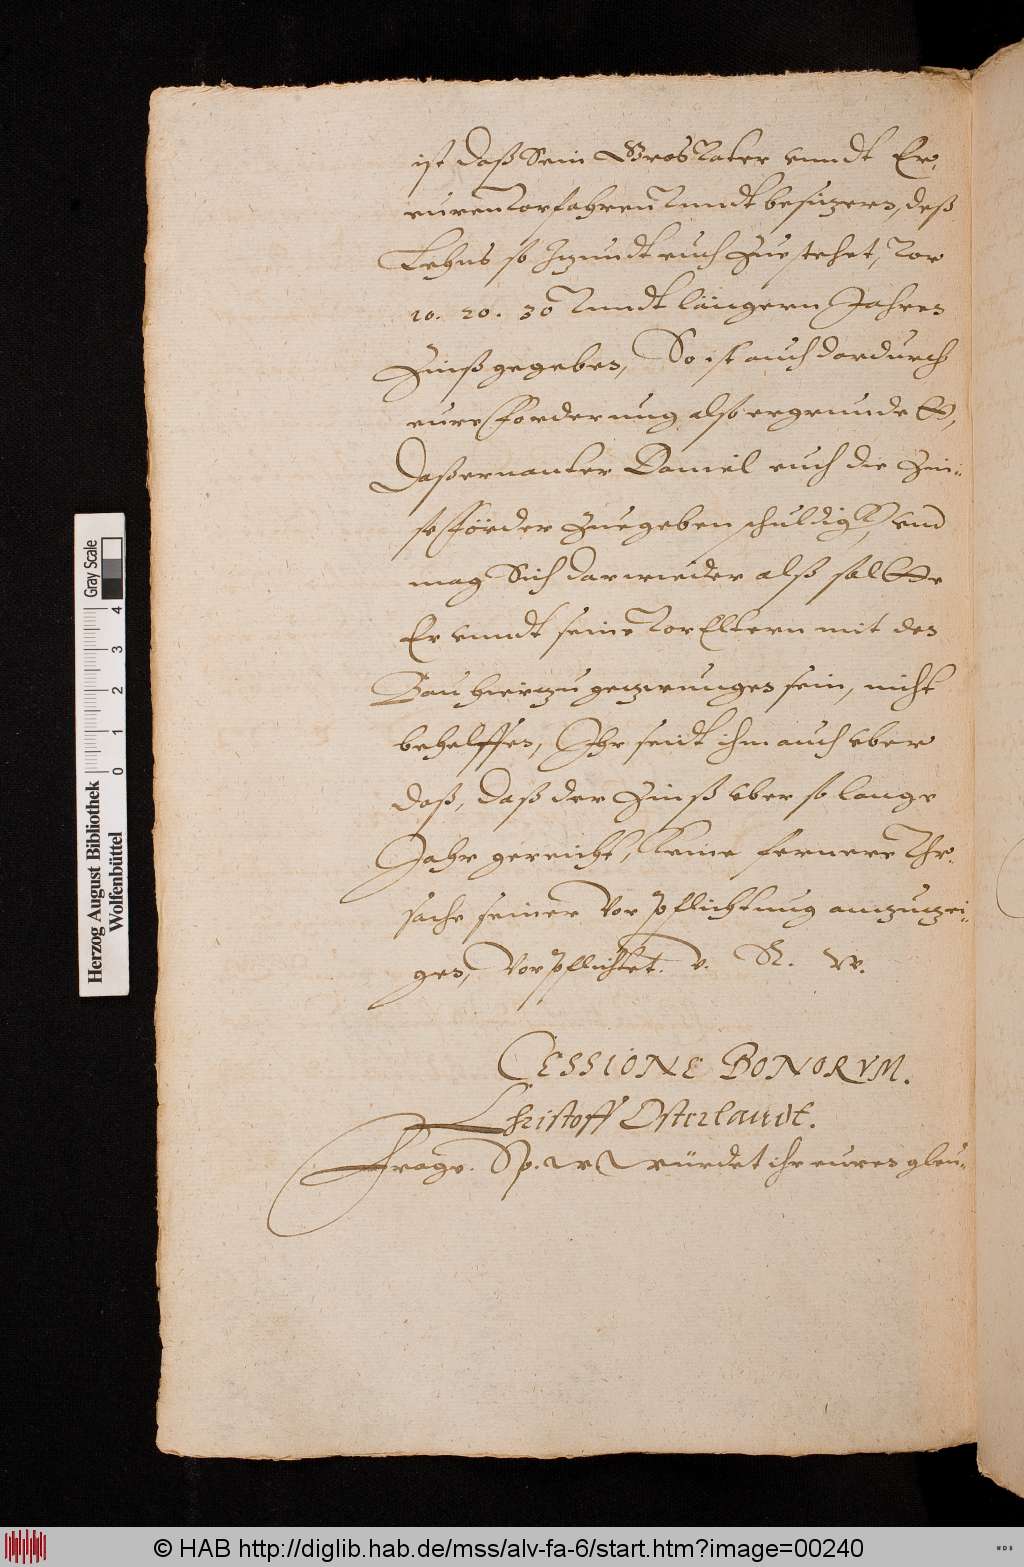 ist daß Sein Gros Vater unndt Er,
euren Vorfahren Unndt besitzern, deß
Lehns so Itzundt euch Zuestehet, Vor
10. 20. 30 Unndt längern Jahren
Zinß gegeben, So ist auch dardurch
eure Forderung also ergrundett,
Daß ernanter Daniel euch die Zin-
se Förder Zuegeben schuldig, und
mag Sich darwieder alß soltte
Er unndt seine Vor Eltern mit des
Bau hierzu gezwungen sein, nicht
behelffen, Ihr seidt ihm auch uber
daß, daß der Zinß uber so lange
Jahr gereicht, keine fernere Uhr-
sache seiner Vorpflichtung anzuzei-
gen, Vorpflichtet. V. R. W.
CESSIONE BONORVM.
Christoff Osterlandt.
Frage. Sp. würdet ihr eures gleu-
Herzog August Bibliothek
Wolfenbüttel
0 1 2 3 4
Gray Scale
© HAB http://diglib.hab.de/mss/alv-fa-6/start.htm?image=00240